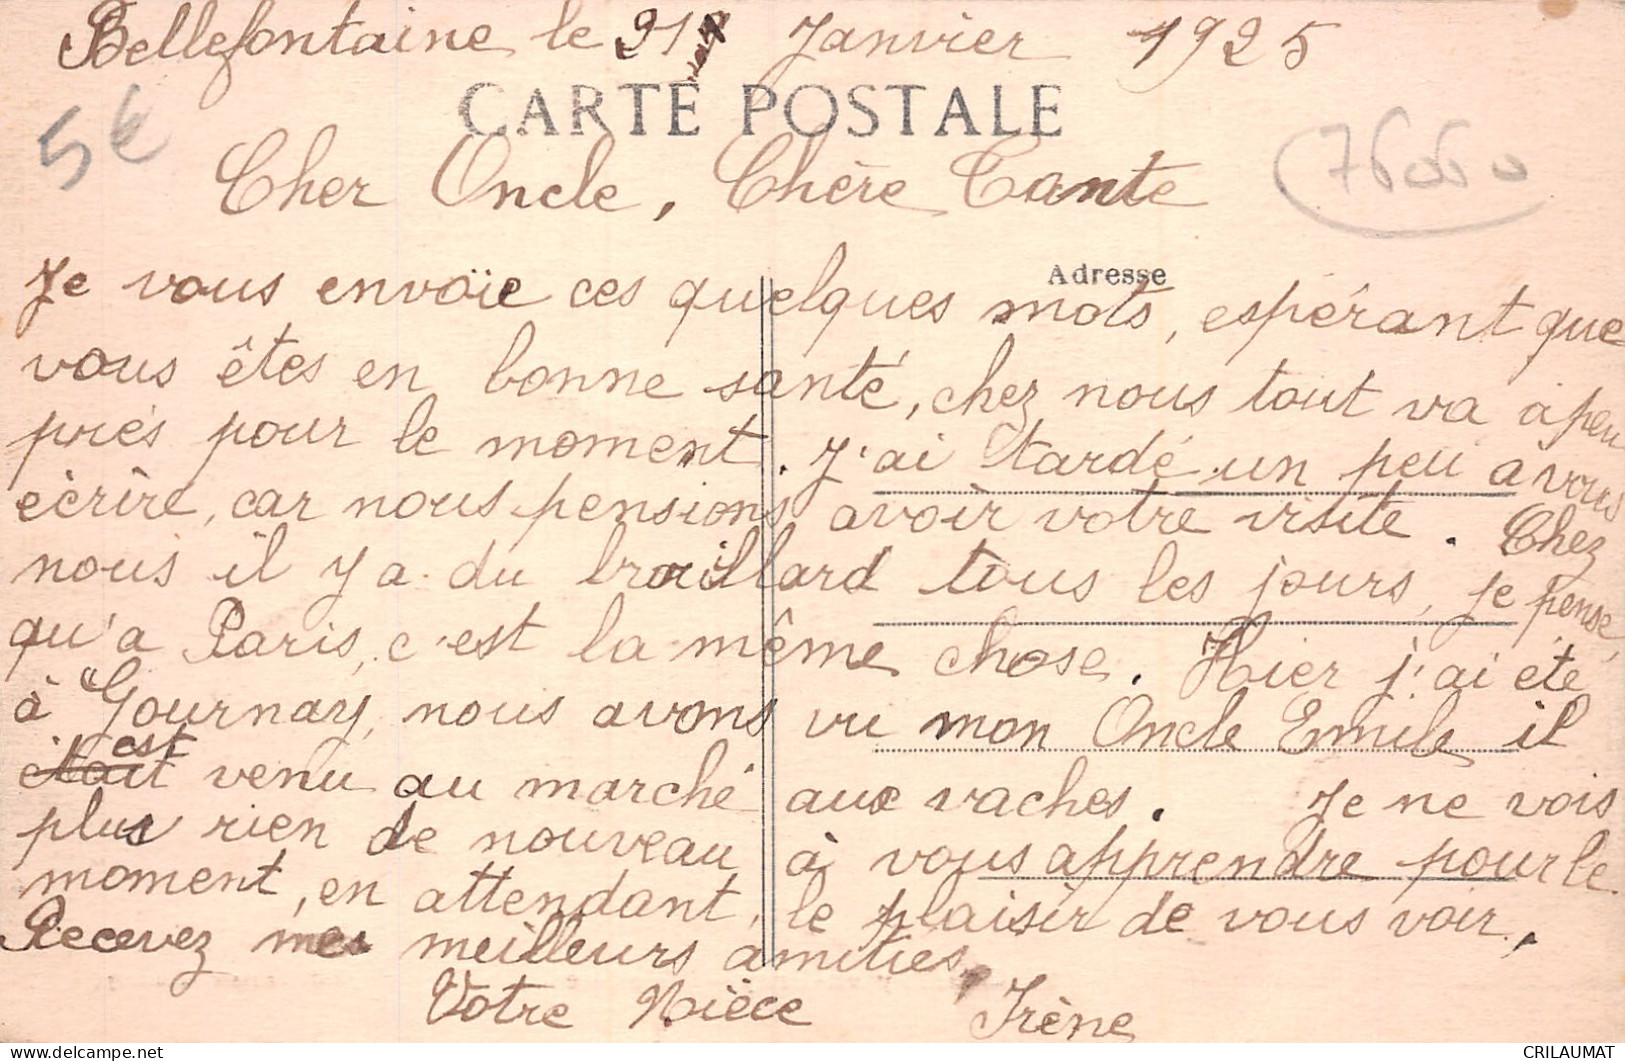 Bellefontaine le 21 Janvier 1925
CARTE POSTALE
5€
Cher Oncle, Chère Tante
76060
Adresse
Je vous envoïe ces quelques mots, espérant que
vous êtes en bonne santé, chez nous tout va à peu
près pour le moment. J'ai tardé un peu a vous
écrire, car nous pensions avoir votre visite. Chez
nous il y a du brouillard tous les jours, je pense,
qu'a Paris, c'est la même chose. Hier j'ai été
à Gournay, nous avons vu mon Oncle Emile il
est venu au marché aux vaches. Je ne vois
plus rien de nouveau à vous apprendre pour le
moment, en attendant, le plaisir de vous voir,
Recevez mes meilleurs amities,
Votre Nièce Irène
CRILAUMAT